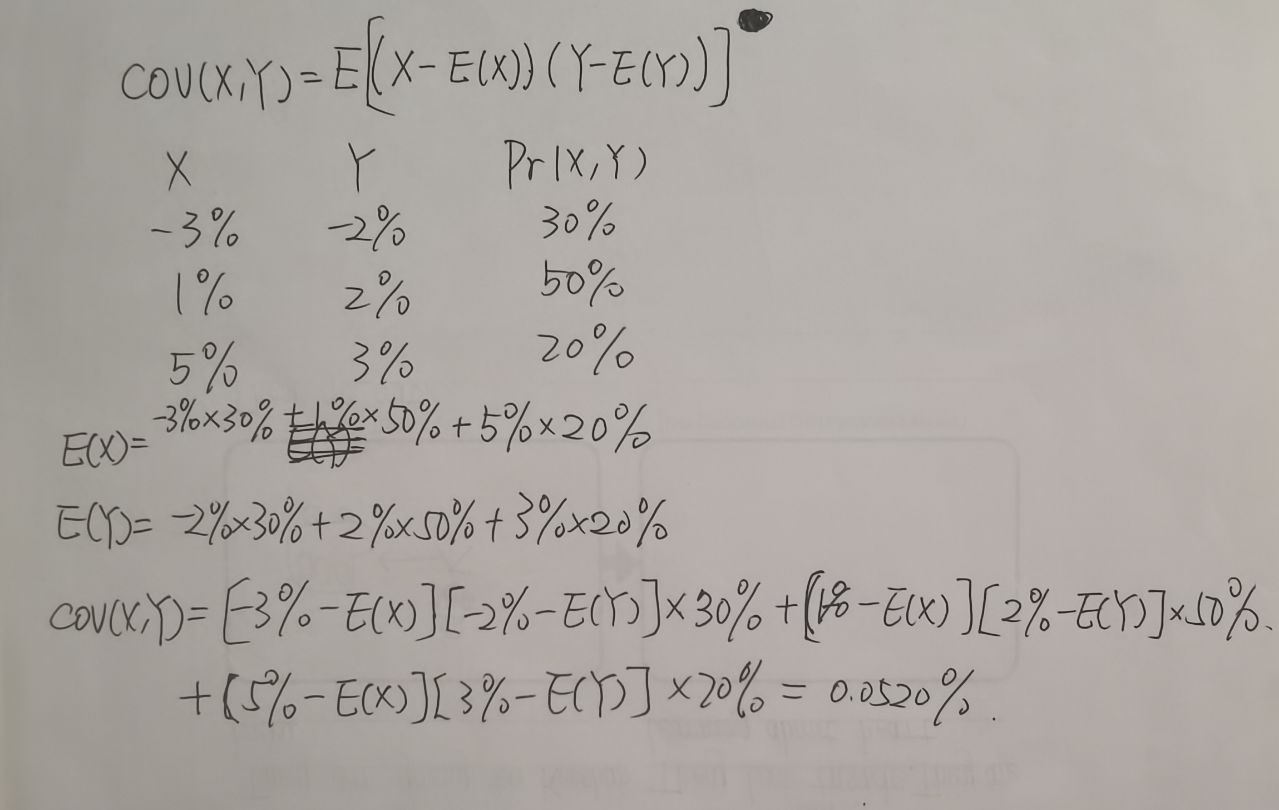 COV(X,Y)=E[(X-E(X))(Y-E(Y))]
X Y Pr(X,Y)
-3% -2% 30%
1% 2% 50%
5% 3% 20%
E(X)= -3%×30%+1%×50%+5%×20%
E(Y)= -2%×30%+2%×50%+3%×20%
COV(X,Y)=[-3%-E(X)][-2%-E(Y)]×30%+[1%-E(X)][2%-E(Y)]×50%.
+[5%-E(X)][3%-E(Y)]×20%=0.0520%.